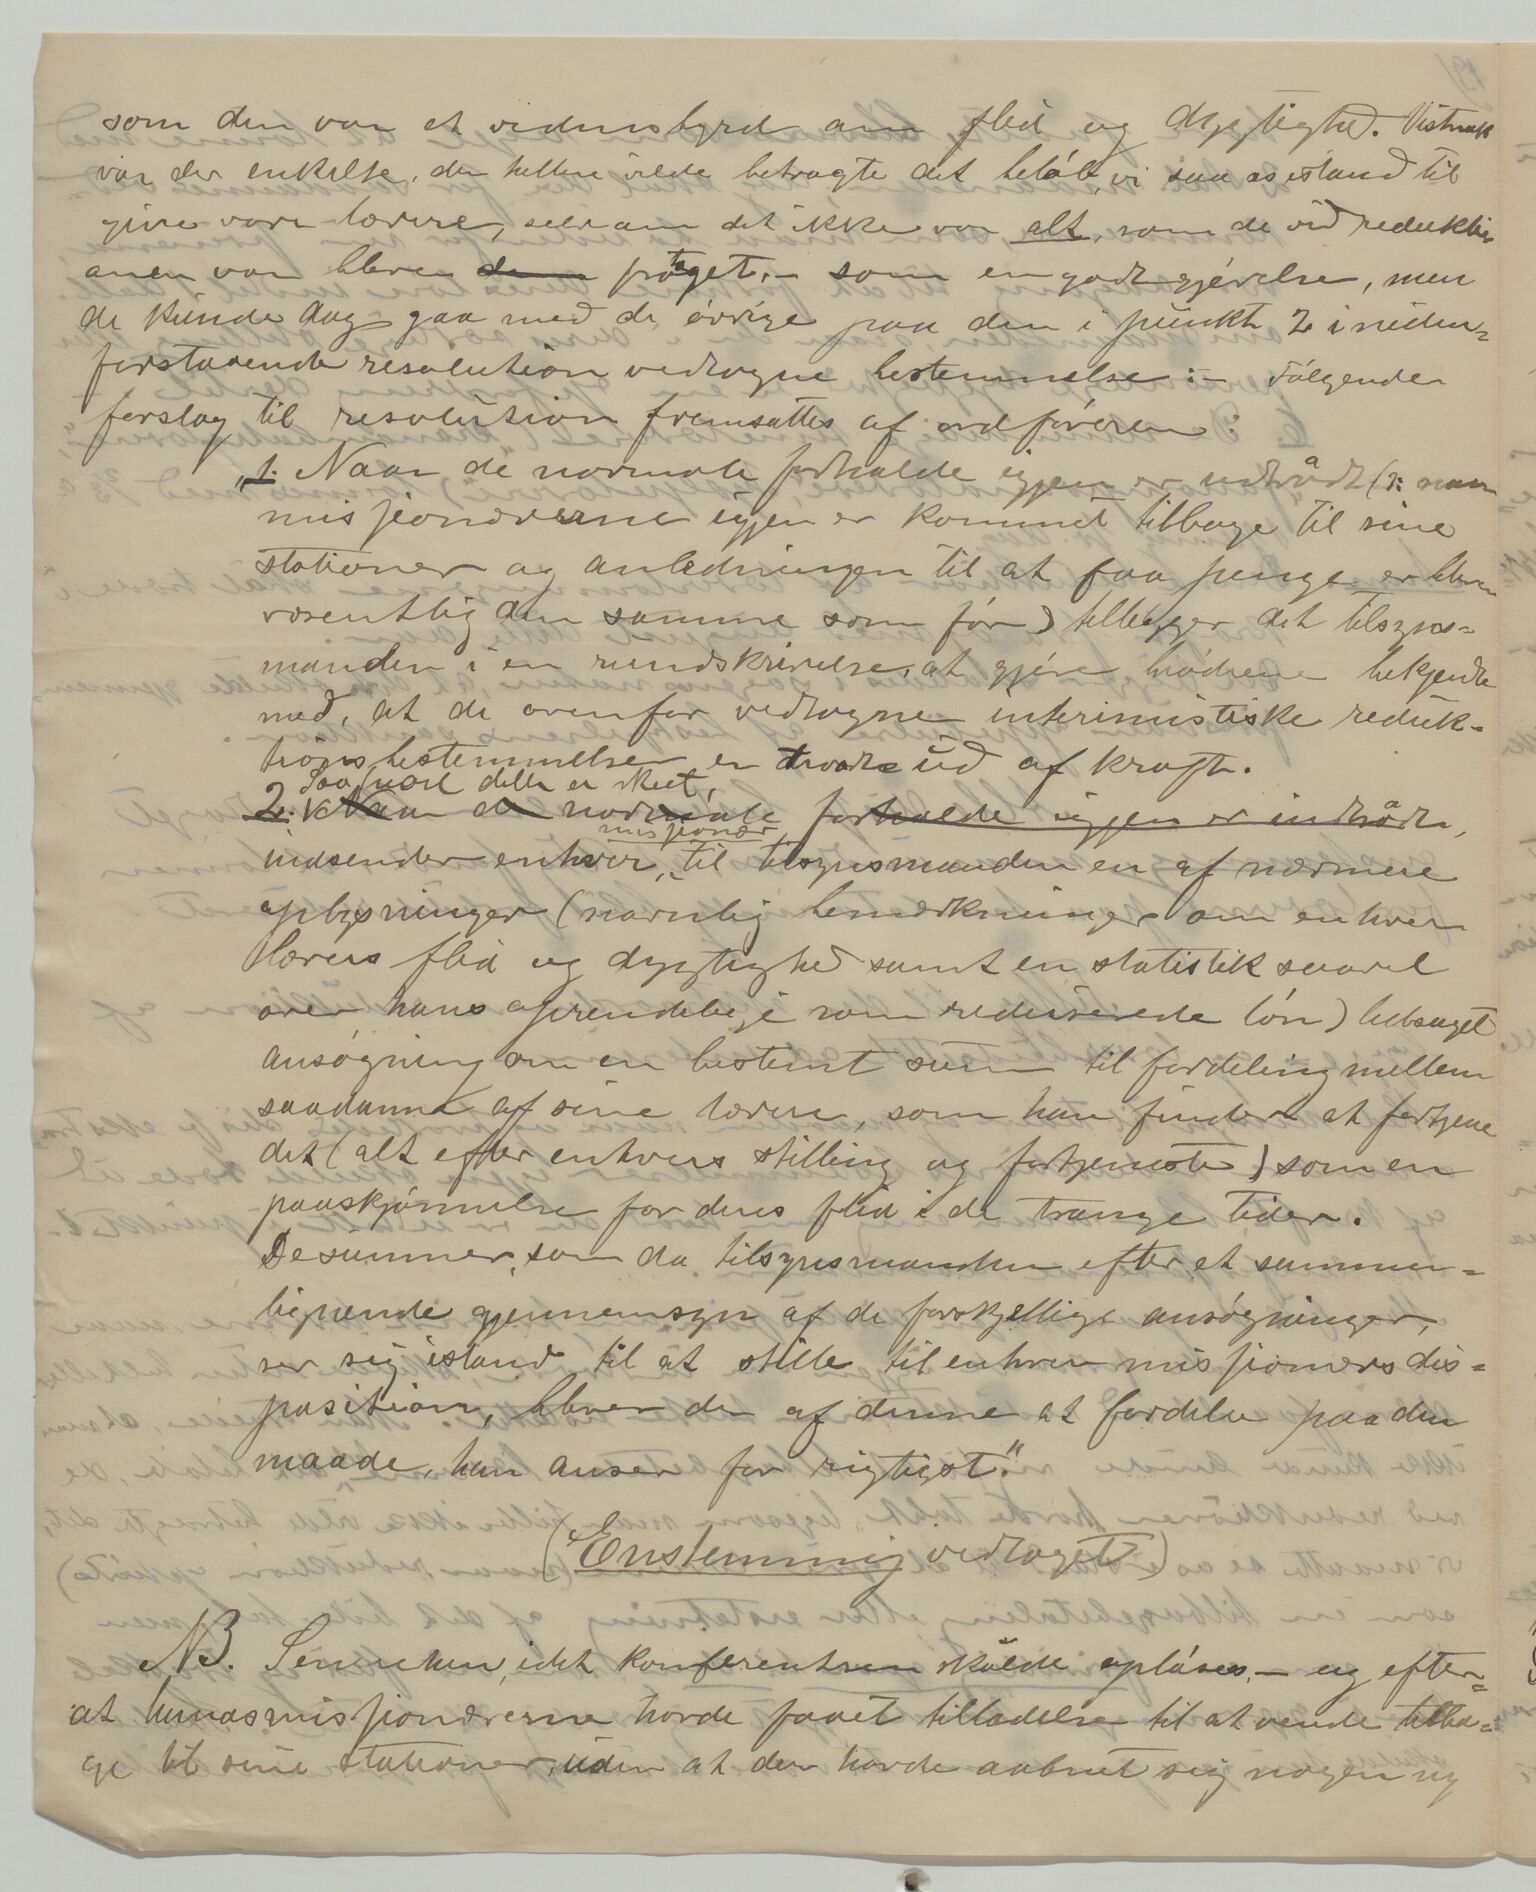 som den var et vidnesbyrd om flid og dygtighed. Vistnok
var der enkelte, der hellere vilde betragte det beløb, vi saa os istand til
give vore lærere, selv om det ikke var alt, som de ved reduktio
onen var bleven frataget, – som en godtgjørelse, men
de kunde dog gaa med de øvrige paa den i punkt 2 i neden=
forstaaende resolution vedtagne bestemmelse :– Følgende
forslag til resolution fremsattes af ordføreren:
„1. Naar de normale forholde igjen er indtrådt (ɔ: naar
misjionærerne igjen er kommet tilbage til sine
stationer og anledningen til at faa penge er bleven
væsentlig den samme som før) tillægger det tilsyns=
manden i en rundskrivelse, at gjøre brødrene bekjendte
med, at de ovenfor vedtagne interimistiske reduk=
tionsbestemmelser er traadt ud af kraft.
Saa snart dette er skeet,
2. Naar de normale forholde igjen er indtrådt,
misjionær
indsender enhver til tilsynsmanden en af nærmere
oplysninger (navnlig bemærkninger om enhver
lærers flid og dygtighed samt en statistik saavel
over hans oprindelige som reducerede løn) ledsaget
ansøgning om en bestemt sum til fordeling mellem
saadanne af sine lærere, som han finder at fortjene
det (alt efter enhvers stilling og fortjeneste) som en
paaskjønnelse for deres flid i de trange tider.
De summer, som da tilsynsmanden efter et sammen=
lignende gjennemsyn af de forskjellige ansøgninger,
ser sig istand til at stille til enhver misjionærs dis=
position, bliver der af denne at fordele paa den
maade, han anser for rigtigst."
(Enstemmig vedtaget)
NB. Senere hen, idet konferentsen skulde opløses, – og efter=
at hovasmisjionærerne havde faaet tilladelse til at vende tilba=
ge til sine stationer, uden at der havde aabnet sig nogen ny